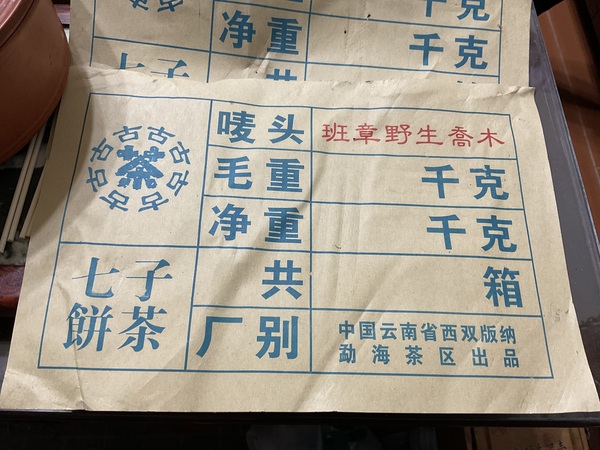 净重 千克
七子 共 箱
古古古古古古古古
茶
唛头 班章野生喬木
毛重 千克
净重 千克
七子 共 箱
餅茶 厂别 中国云南省西双版纳
勐海茶区出品